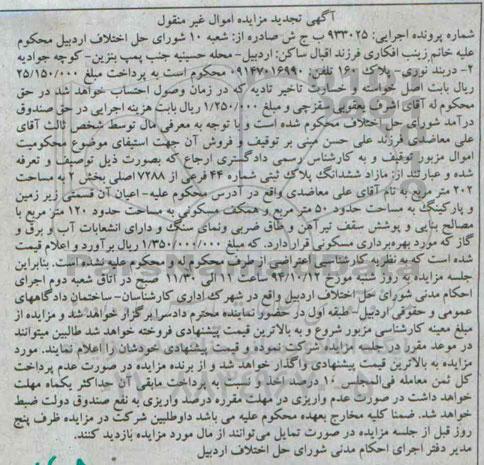 آگهی تجدید مزایده اموال غیر منقول
شماره پرونده اجرایی: ۹۳۳۰۲۵ ب ج ش صادره از: شعبه ۱۰ شورای حل اختلاف اردبیل محکوم
علیه خانم زینب افکاری فرزند اقبال ساکن: اردبیل- محله حسینیه جنب پمپ بنزین- کوچه جوادیه
۲- دربند نوری- پلاک ۱۶۰ تلفن: ۰۹۱۴۷۰۱۶۹۹۰ محکوم است به پرداخت مبلغ ۲۵/۱۵۰/۰۰۰
ریال بابت اصل خواسته و خسارت تاخیر تادیه که در زمان وصول احتساب خواهد شد در حق
محکوم له آقای اشرف یعقوبی صفرچی و مبلغ ۱/۲۵۰/۰۰۰ ریال بابت هزینه اجرایی در حق صندوق
درآمد شورای حل اختلاف محکوم شده است و با توجه به معرفی مال توسط شخص ثالث آقای
علی معاضدی فرزند علی حسن مبنی بر توقیف و فروش آن جهت استیفای موضوع محکومیت
اموال مزبور توقیف و به کارشناس رسمی دادگستری ارجاع که بصورت ذیل توصیف و تعرفه
شده و عبارتند از: مازاد ششدانگ پلاک ثبتی شماره ۴۴ فرعی از ۷۲۸۸ اصلی بخش ۲ به مساحت
۲۰۲ متر مربع به نام آقای علی معاضدی واقع در آدرس محکوم علیه- اعیان آن قسمتی زیر زمین
و پارکینگ به مساحت حدود ۵۰ متر مربع و همکف مسکونی به مساحت حدود ۱۲۰ متر مربع با
مصالح بنایی و پوشش سقف تیرآهن و طاق ضربی ونمای سنگ و دارای انشعابات آب و برق و
گاز که مورد بهره‌برداری مسکونی قرار دارد. که مبلغ ۱/۳۵۰/۰۰۰/۰۰۰ ریال برآورد و اعلام قیمت
شده است که به نظریه کارشناسی اعتراضی از طرف محکوم له و محکوم علیه نشده است. بنابراین
جلسه مزایده به روز شنبه مورخ ۹۴/۱۰/۱۲ ساعت ۱۱ الی ۱۱/۳۰ صبح در اتاق شعبه دوم اجرای
احکام مدنی شورای حل اختلاف اردبیل واقع در شهرک اداری کارشناسان- ساختمان دادگاههای
عمومی و حقوقی اردبیل- طبقه اول در حضور نماینده محترم دادسرا برگزار خواهد شد و مزایده از
مبلغ معینه کارشناسی مزبور شروع و به بالاترین قیمت پیشنهادی فروخته خواهد شد طالبین میتوانند
در موعد مقرر در جلسه مزایده شرکت نموده و قیمت پیشنهادی خودشان را اعلام نمایند. مورد
مزایده به بالاترین قیمت پیشنهادی واگذار خواهد شد و از برنده مزایده در صورت عدم پرداخت
کل ثمن معامله فی‌المجلس ۱۰ درصد اخذ و نسبت به پرداخت مابقی آن حداکثر یکماه مهلت
خواهد داشت در صورت عدم واریزی در مهلت مقرره درصد واریزی به نفع صندوق دولت ضبط
خواهد شد. ضمنا کلیه مخارج بعهده محکوم علیه می باشد داوطلبین شرکت در مزایده ظرف پنج
روز قبل از جلسه مزایده در صورت تمایل می‌توانند از مال مورد مزایده بازدید کنند.
مدیر دفتر اجرای احکام مدنی شورای حل اختلاف اردبیل
ParsNamadData